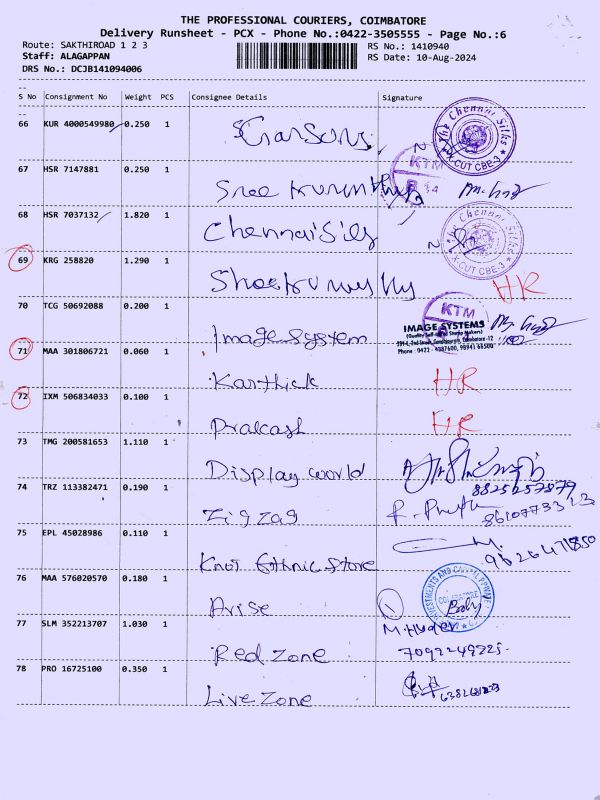 THE PROFESSIONAL COURIERS, COIMBATORE
Delivery Runsheet - PCX - Phone No.:0422-3505555 - Page No.:6
Route: SAKTHIROAD 1 2 3
Staff: ALAGAPPAN
DRS No.: DCJB141094006
RS No.: 1410940
RS Date: 10-Aug-2024
S No Consignment No Weight PCS Consignee Details Signature
66 KUR 4000549980 0.250 1
The Chennai Silks
X-CUT CBE-3
67 HSR 7147881 0.250 1
KTM
Sree
68 HSR 7037132 1.820 1
Chennai Silks
The Chennai Silks
X-CUT CBE-3
69 KRG 258820 1.290 1
HR
70 TCG 50692088 0.200 1
KTM
Image System
IMAGE SYSTEMS
71 MAA 301806721 0.060 1
Karthick HR
72 IXM 506834033 0.100 1
Prakash HR
73 TMG 200581653 1.110 1
Display world
8825257879
74 TRZ 113382471 0.190 1
Zigzag
75 EPL 45028986 0.110 1
Knot Ethnic Store
76 MAA 576020570 0.180 1
Arise
COIMBATORE
77 SLM 352213707 1.030 1
Red Zone
7092249225
78 PRO 16725100 0.350 1
Live Zone